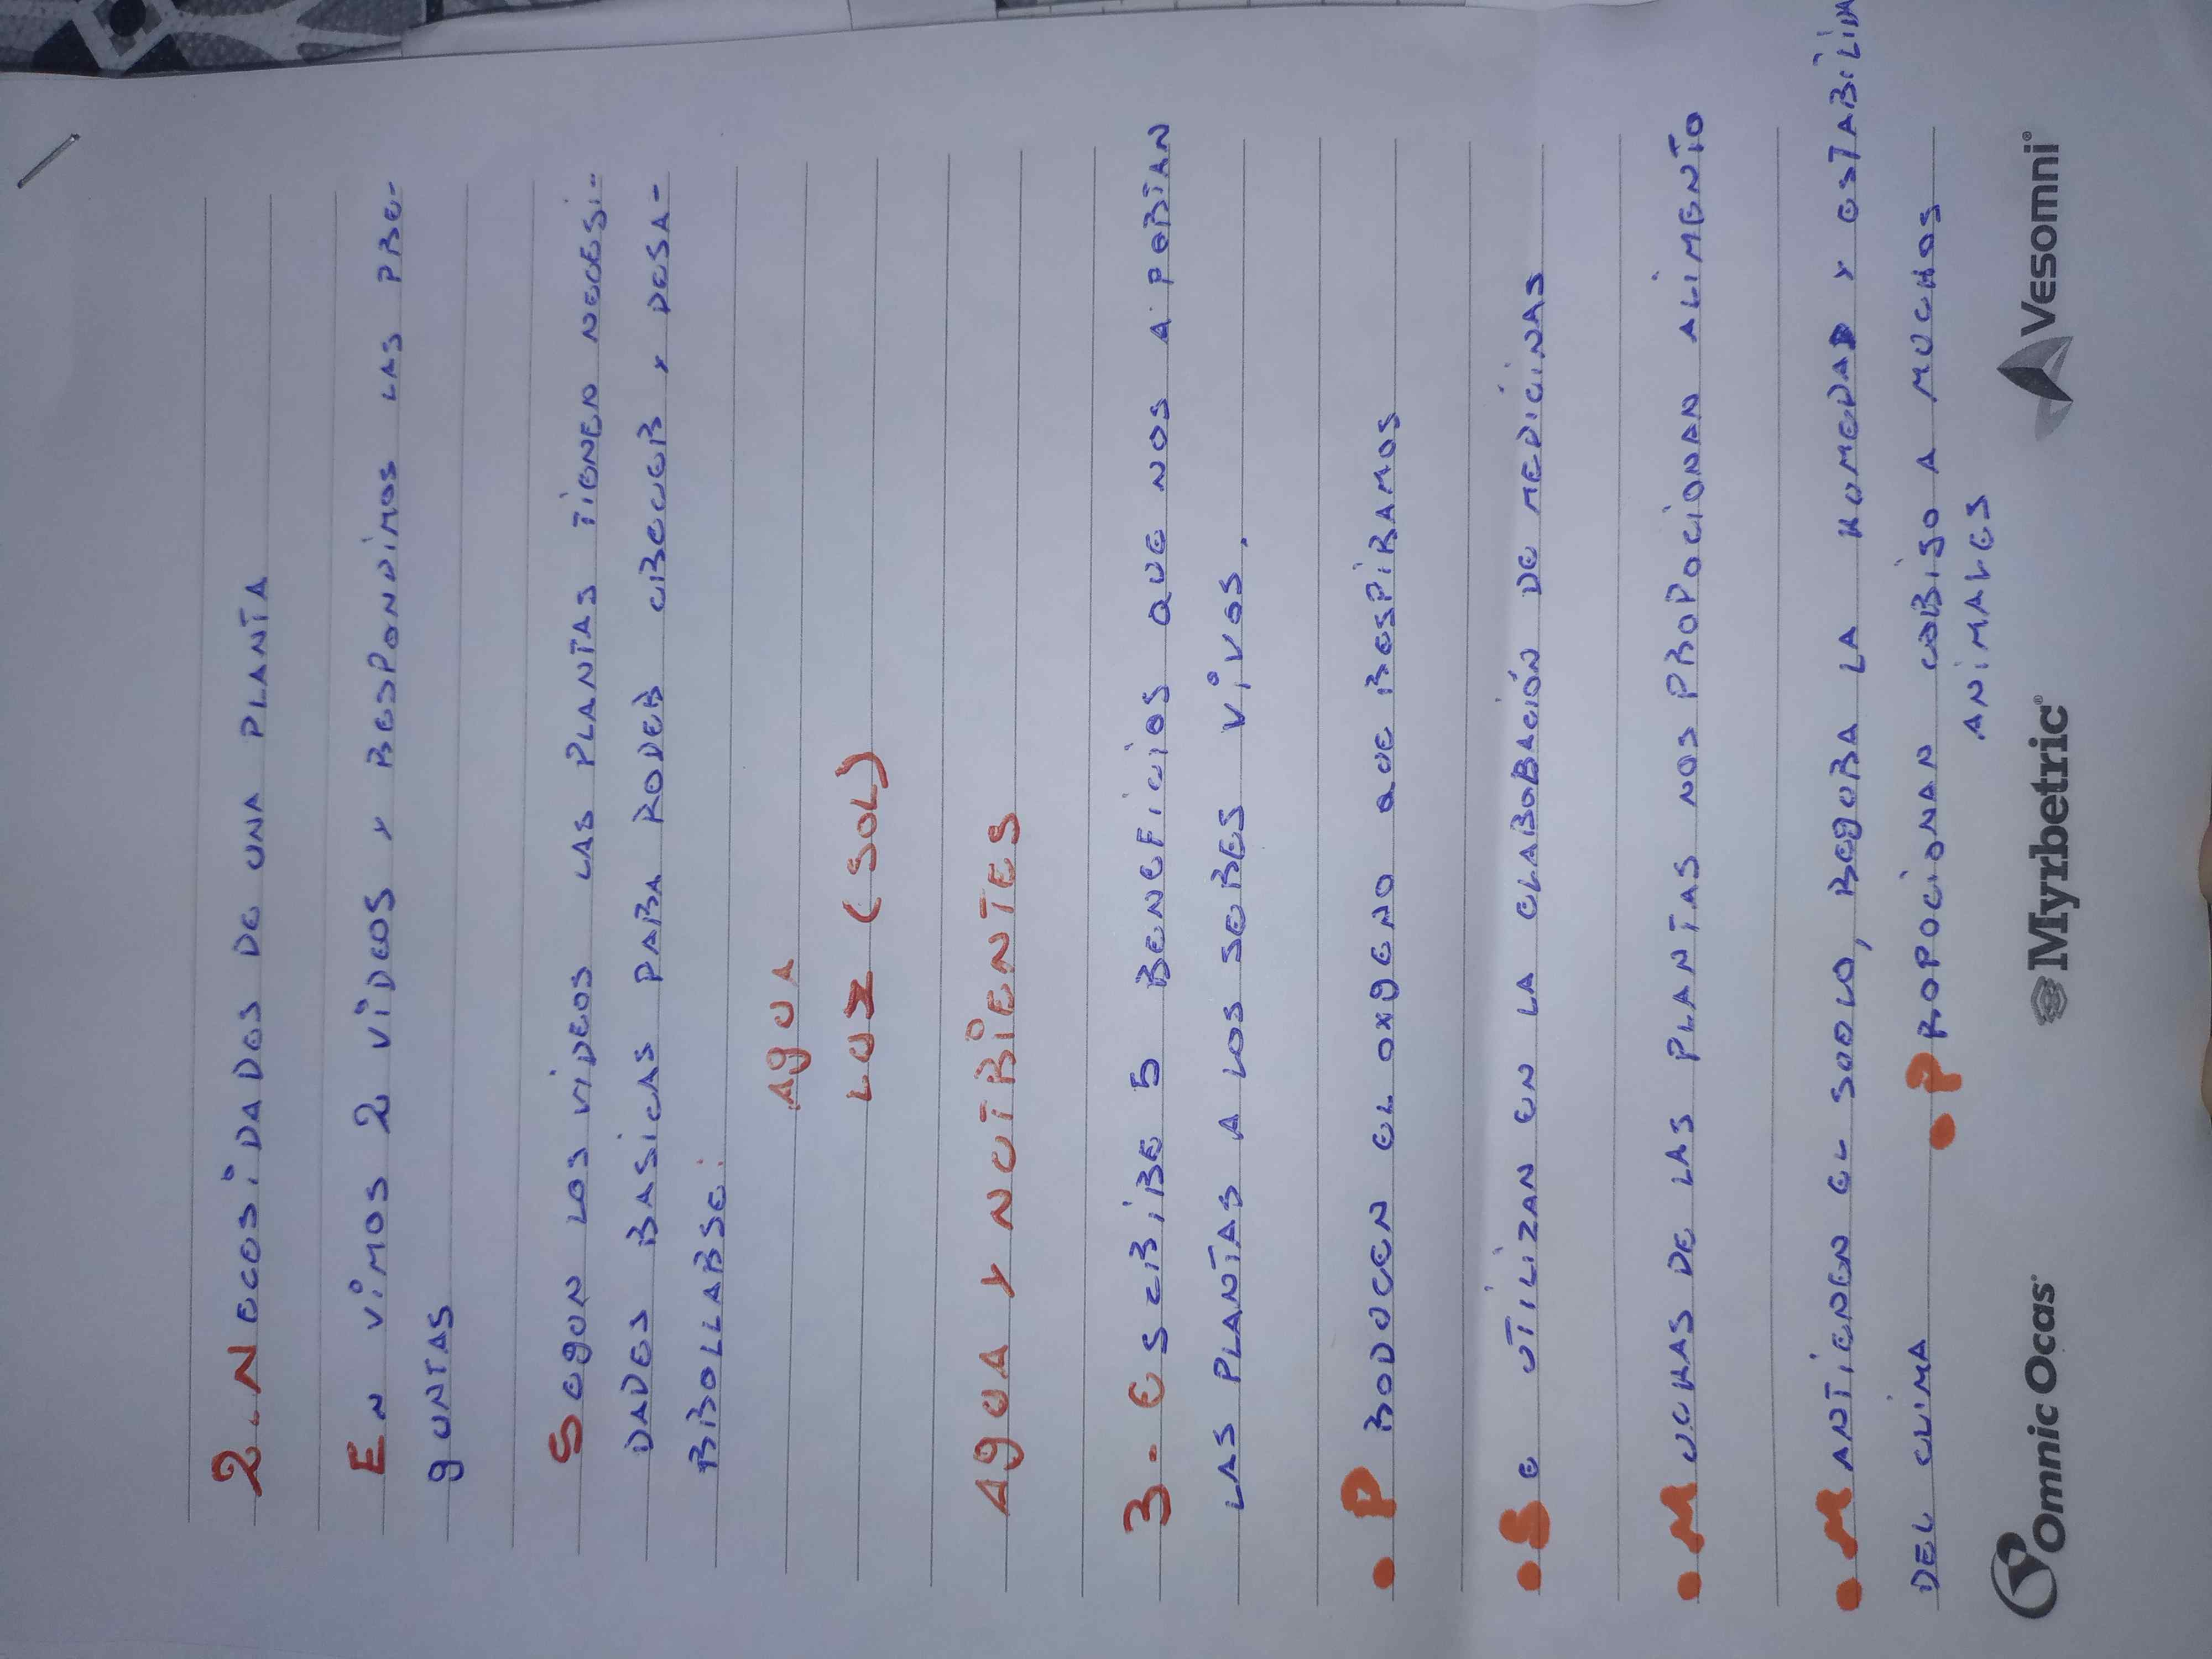 2.- NECESIDADES DE UNA PLANTA
EN VIMOS 2 VIDEOS Y RESPONDIMOS LAS PRE-
gUNTAS
SEgUN LOS VIDEOS LAS PLANTAS TIENEN NECESI-
DADES BASICAS PARA PODER CRECER Y DESA-
RROLLARSE:
AgUA
LUZ (SOL)
AgUA Y NUTRIENTES
3.- ESCRIBE 5 BENEFICIOS QUE NOS APORTAN
LAS PLANTAS A LOS SERES VIVOS.
• PRODUCEN EL OXgENO QUE RESPIRAMOS
• SE UTILIZAN EN LA ELABORACIÓN DE MEDICINAS
• MUCHAS DE LAS PLANTAS NOS PROPOCIONAN ALIMENTO
• MANTIENEN EL SUELO, REgURA LA HUMEDAD Y ESTABILIDA
DEL CLIMA • PROPOCIONAN COBISO A MUCHOS
ANIMALES
Omnic Ocas® Myrbetric® Vesomni®